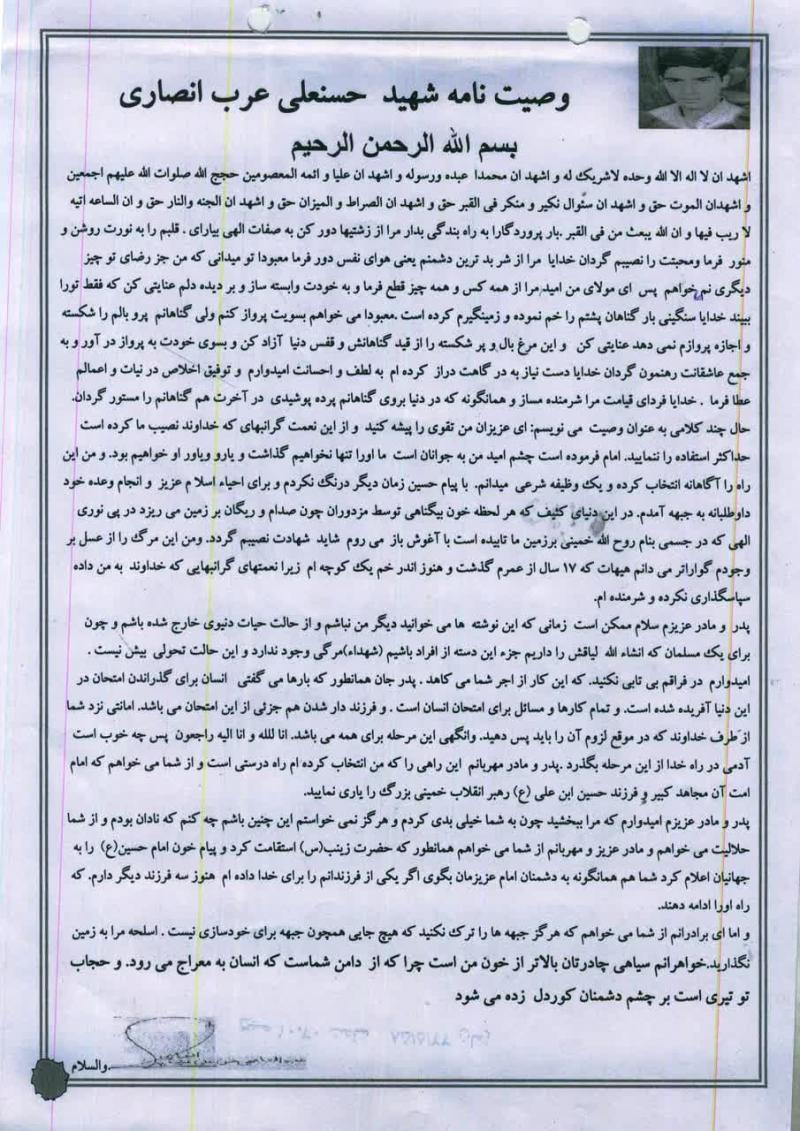 وصیت نامه شهید حسنعلی عرب انصاری
بسم الله الرحمن الرحیم
اشهد ان لا اله الا الله وحده لاشریک له و اشهد ان محمدا عبده ورسوله و اشهد ان علیا و ائمه المعصومین حجج الله صلوات الله علیهم اجمعین
و اشهدان الموت حق و اشهد ان سئوال نکیر و منکر فی القبر حق و اشهد ان الصراط و المیزان حق و اشهد ان الجنه والنار حق و ان الساعه اتیه
لا ریب فیها و ان الله یبعث من فی القبر .بار پروردگارا به راه بندگی بدار مرا از زشتیها دور کن به صفات الهی بیارای . قلبم را به نورت روشن و
منور فرما ومحبتت را نصیبم گردان خدایا مرا از شر بد ترین دشمنم یعنی هوای نفس دور فرما معبودا تو میدانی که من جز رضای تو چیز
دیگری نم خواهم پس ای مولای من امید مرا از همه کس و همه چیز قطع فرما و به خودت وابسته ساز و بر دیده دلم عنایتی کن که فقط تورا
ببیند خدایا سنگینی بار گناهان پشتم را خم نموده و زمینگیرم کرده است .معبودا می خواهم بسویت پرواز کنم ولی گناهانم پرو بالم را شکسته
و اجازه پروازم نمی دهد عنایتی کن و این مرغ بال و پر شکسته را از قید گناهانش و قفس دنیا آزاد کن و بسوی خودت به پرواز در آور و به
جمع عاشقانت رهنمون گردان خدایا دست نیاز به در گاهت دراز کرده ام به لطف و احسانت امیدوارم و توفیق اخلاص در نیات و اعمالم
عطا فرما . خدایا فردای قیامت مرا شرمنده مساز و همانگونه که در دنیا بروی گناهانم پرده پوشیدی در آخرت هم گناهانم را مستور گردان.
حال چند کلامی به عنوان وصیت می نویسم: ای عزیزان من تقوی را پیشه کنید و از این نعمت گرانبهای که خداوند نصیب ما کرده است
حداکثر استفاده را ننمایید. امام فرموده است چشم امید من به جوانان است ما اورا تنها نخواهیم گذاشت و یارو ویاور او خواهیم بود. و من این
راه را آگاهانه انتخاب کرده و یک وظیفه شرعی میدانم. با پیام حسین زمان دیگر درنگ نکردم و برای احیاء اسلا م عزیز و انجام وعده خود
داوطلبانه به جبهه آمدم. در این دنیای کثیف که هر لحظه خون بیگناهی توسط مزدوران چون صدام و ریگان بر زمین می ریزد در پی نوری
الهی که در جسمی بنام روح الله خمینی برزمین ما تابیده است با آغوش باز می روم شاید شهادت نصیبم گردد. ومن این مرگ را از عسل بر
وجودم گواراتر می دانم هیهات که ۱۷ سال از عمرم گذشت و هنوز اندر خم یک کوچه ام زیرا نعمتهای گرانبهایی که خداوند به من داده
سپاسگذاری نکرده و شرمنده ام.
پدر و مادر عزیزم سلام ممکن است زمانی که این نوشته ها می خوانید دیگر من نباشم و از حالت حیات دنیوی خارج شده باشم و چون
برای یک مسلمان که انشاء الله لیاقش را داریم جزء این دسته از افراد باشیم (شهداء)مرگی وجود ندارد و این حالت تحولی بیش نیست .
امیدوارم در فراقم بی تابی نکنید. که این کار از اجر شما می کاهد . پدر جان همانطور که بارها می گفتی انسان برای گذراندن امتحان در
این دنیا آفریده شده است. و تمام کارها و مسائل برای امتحان انسان است . و فرزند دار شدن هم جزئی از این امتحان می باشد. امانتی نزد شما
از طرف خداوند که در موقع لزوم آن را باید پس دهید. وانگهی این مرحله برای همه می باشد. انا لله و انا الیه راجعون پس چه خوب است
آدمی در راه خدا از این مرحله بگذرد .پدر و مادر مهربانم این راهی را که من انتخاب کرده ام راه درستی است و از شما می خواهم که امام
امت آن مجاهد کبیر و فرزند حسین ابن علی (ع) رهبر انقلاب خمینی بزرگ را یاری نمایید.
پدر و مادر عزیزم امیدوارم که مرا ببخشید چون به شما خیلی بدی کردم و هرگز نمی خواستم این چنین باشم چه کنم که نادان بودم و از شما
حلالیت می خواهم و مادر عزیز و مهربانم از شما می خواهم همانطور که حضرت زینب(س) استقامت کرد و پیام خون امام حسین(ع) را به
جهانیان اعلام کرد شما هم همانگونه به دشمنان امام عزیزمان بگوی اگر یکی از فرزندانم را برای خدا داده ام هنوز سه فرزند دیگر دارم. که
راه اورا ادامه دهند.
و اما ای برادرانم از شما می خواهم که هرگز جبهه ها را ترک نکنید که هیچ جایی همچون جبهه برای خودسازی نیست . اسلحه مرا به زمین
نگذارید.خواهرانم سیاهی چادرتان بالاتر از خون من است چرا که از دامن شماست که انسان به معراج می رود. و حجاب
تو تیری است بر چشم دشمنان کوردل زده می شود
والسلام.